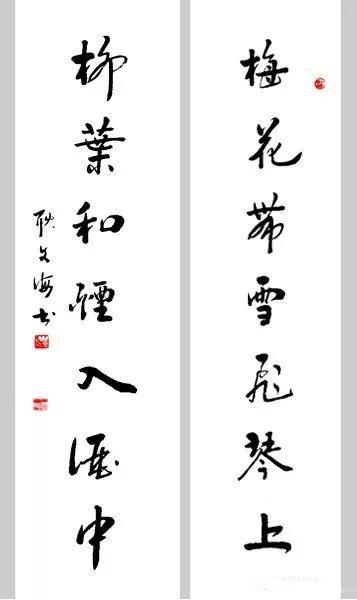 梅花帶雪飛琴上
柳葉和煙入酒中
耿文海书